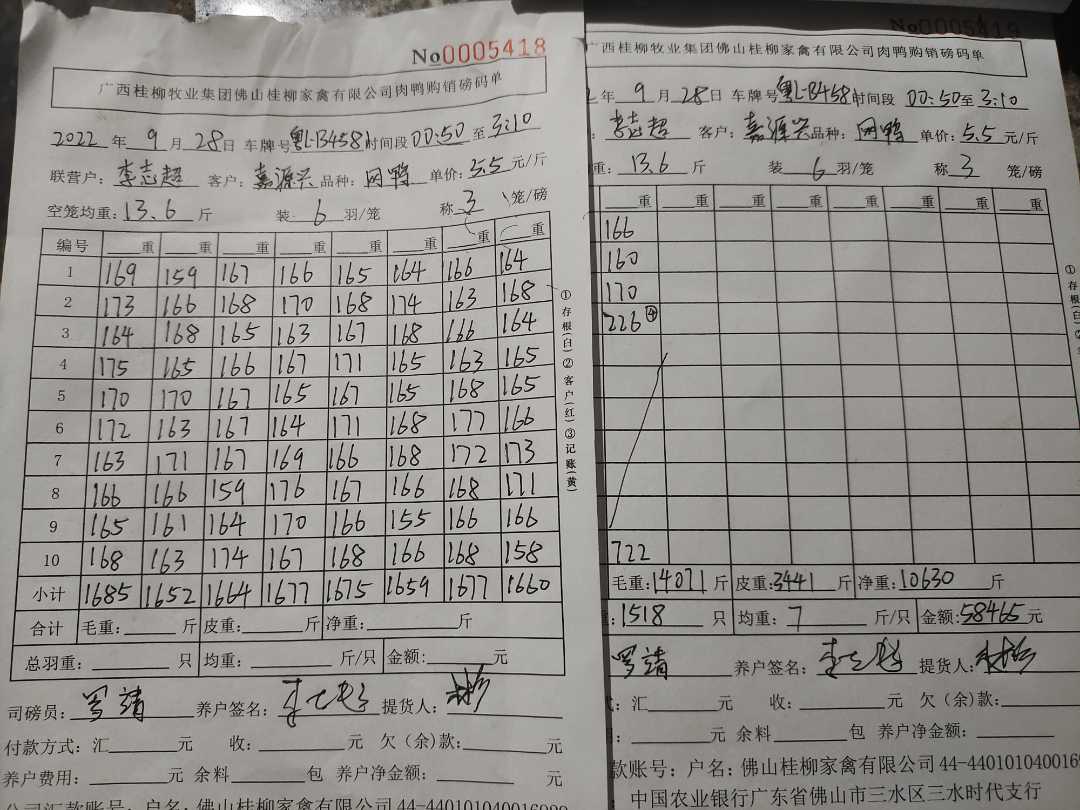 No0005418
广西桂柳牧业集团佛山桂柳家禽有限公司肉鸭购销磅码单
2022 年 9 月 28 日 车牌号 粤L·B4581 时间段 00:50 至 3:10
联营户: 李志超 客户: 嘉源兴 品种: 网鸭 单价: 5.5 元/斤
空笼均重: 13.6 斤 装 6 羽/笼 称 3 笼/磅
编号 重 重 重 重 重 重 重 重
1 169 159 167 166 165 164 166 164
2 173 166 168 170 168 174 163 168
3 164 168 165 163 167 168 166 164
4 175 165 166 167 171 165 163 165
5 170 170 167 165 167 165 168 165
6 172 163 167 164 171 168 177 166
7 163 171 167 169 166 168 172 173
8 166 166 159 176 167 166 168 171
9 165 161 164 170 166 155 166 166
10 168 163 174 167 168 166 168 158
小计 1685 1652 1664 1677 1675 1659 1677 1660
合计 毛重: 斤 皮重: 斤 净重: 斤
总羽重: 只 均重: 斤/只 金额: 元
司磅员: 罗靖 养户签名: 提货人:
付款方式: 汇 元 收: 元 欠(余)款: 元
养户费用: 元 余料 包 养户净金额: 元
①存根(白)②客户(红)③记账(黄)
No0005419
广西桂柳牧业集团佛山桂柳家禽有限公司肉鸭购销磅码单
年 9 月 28 日 车牌号 粤L·B4581 时间段 00:50 至 3:10
李志超 客户: 嘉源兴 品种: 网鸭 单价: 5.5 元/斤
重: 13.6 斤 装 6 羽/笼 称 3 笼/磅
重 重 重 重 重 重 重 重
166
160
170
226 ④
722
毛重: 14071 斤 皮重: 3441 斤 净重: 10630 斤
1518 只 均重: 7 斤/只 金额: 58465 元
罗靖 养户签名: 提货人:
汇 元 收: 元 欠(余)款:
元 余料 包 养户净金额:
款账号: 户名: 佛山桂柳家禽有限公司 44-4401010400169
中国农业银行广东省佛山市三水区三水时代支行
①存根(白)②